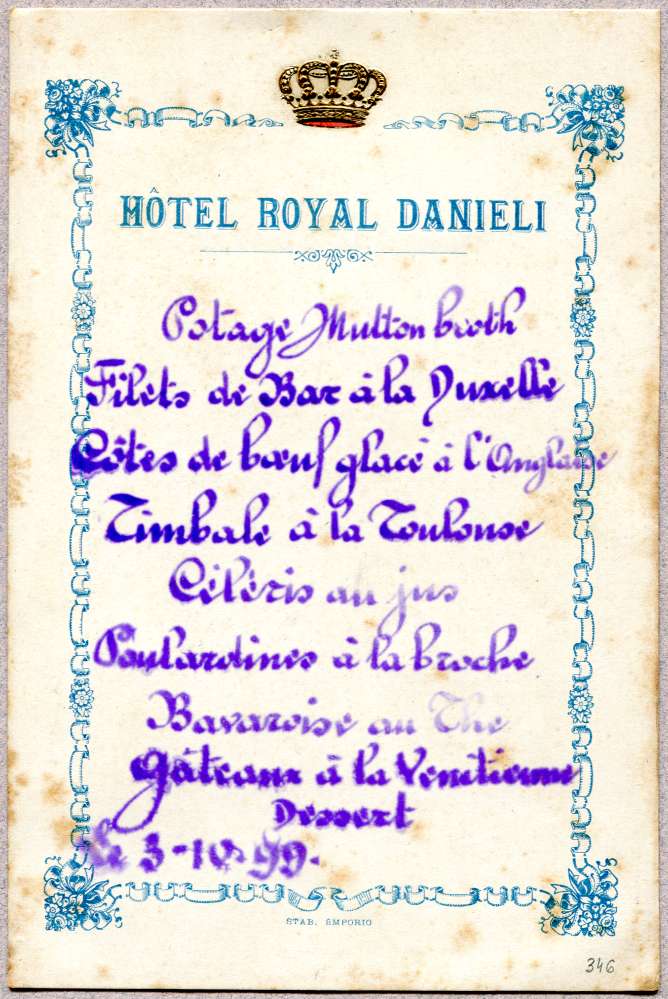 HÔTEL ROYAL DANIELI
Potage Mutton broth
Filets de Bar à la Duxelle
Côtes de bœuf glacé à l'Anglaise
Timbale à la Toulouse
Céléris au jus
Poulardines à la broche
Bavaroise au Thé
Gâteaux à la Venitienne
Dessert
le 3-10-99.
STAB. EMPORIO
346